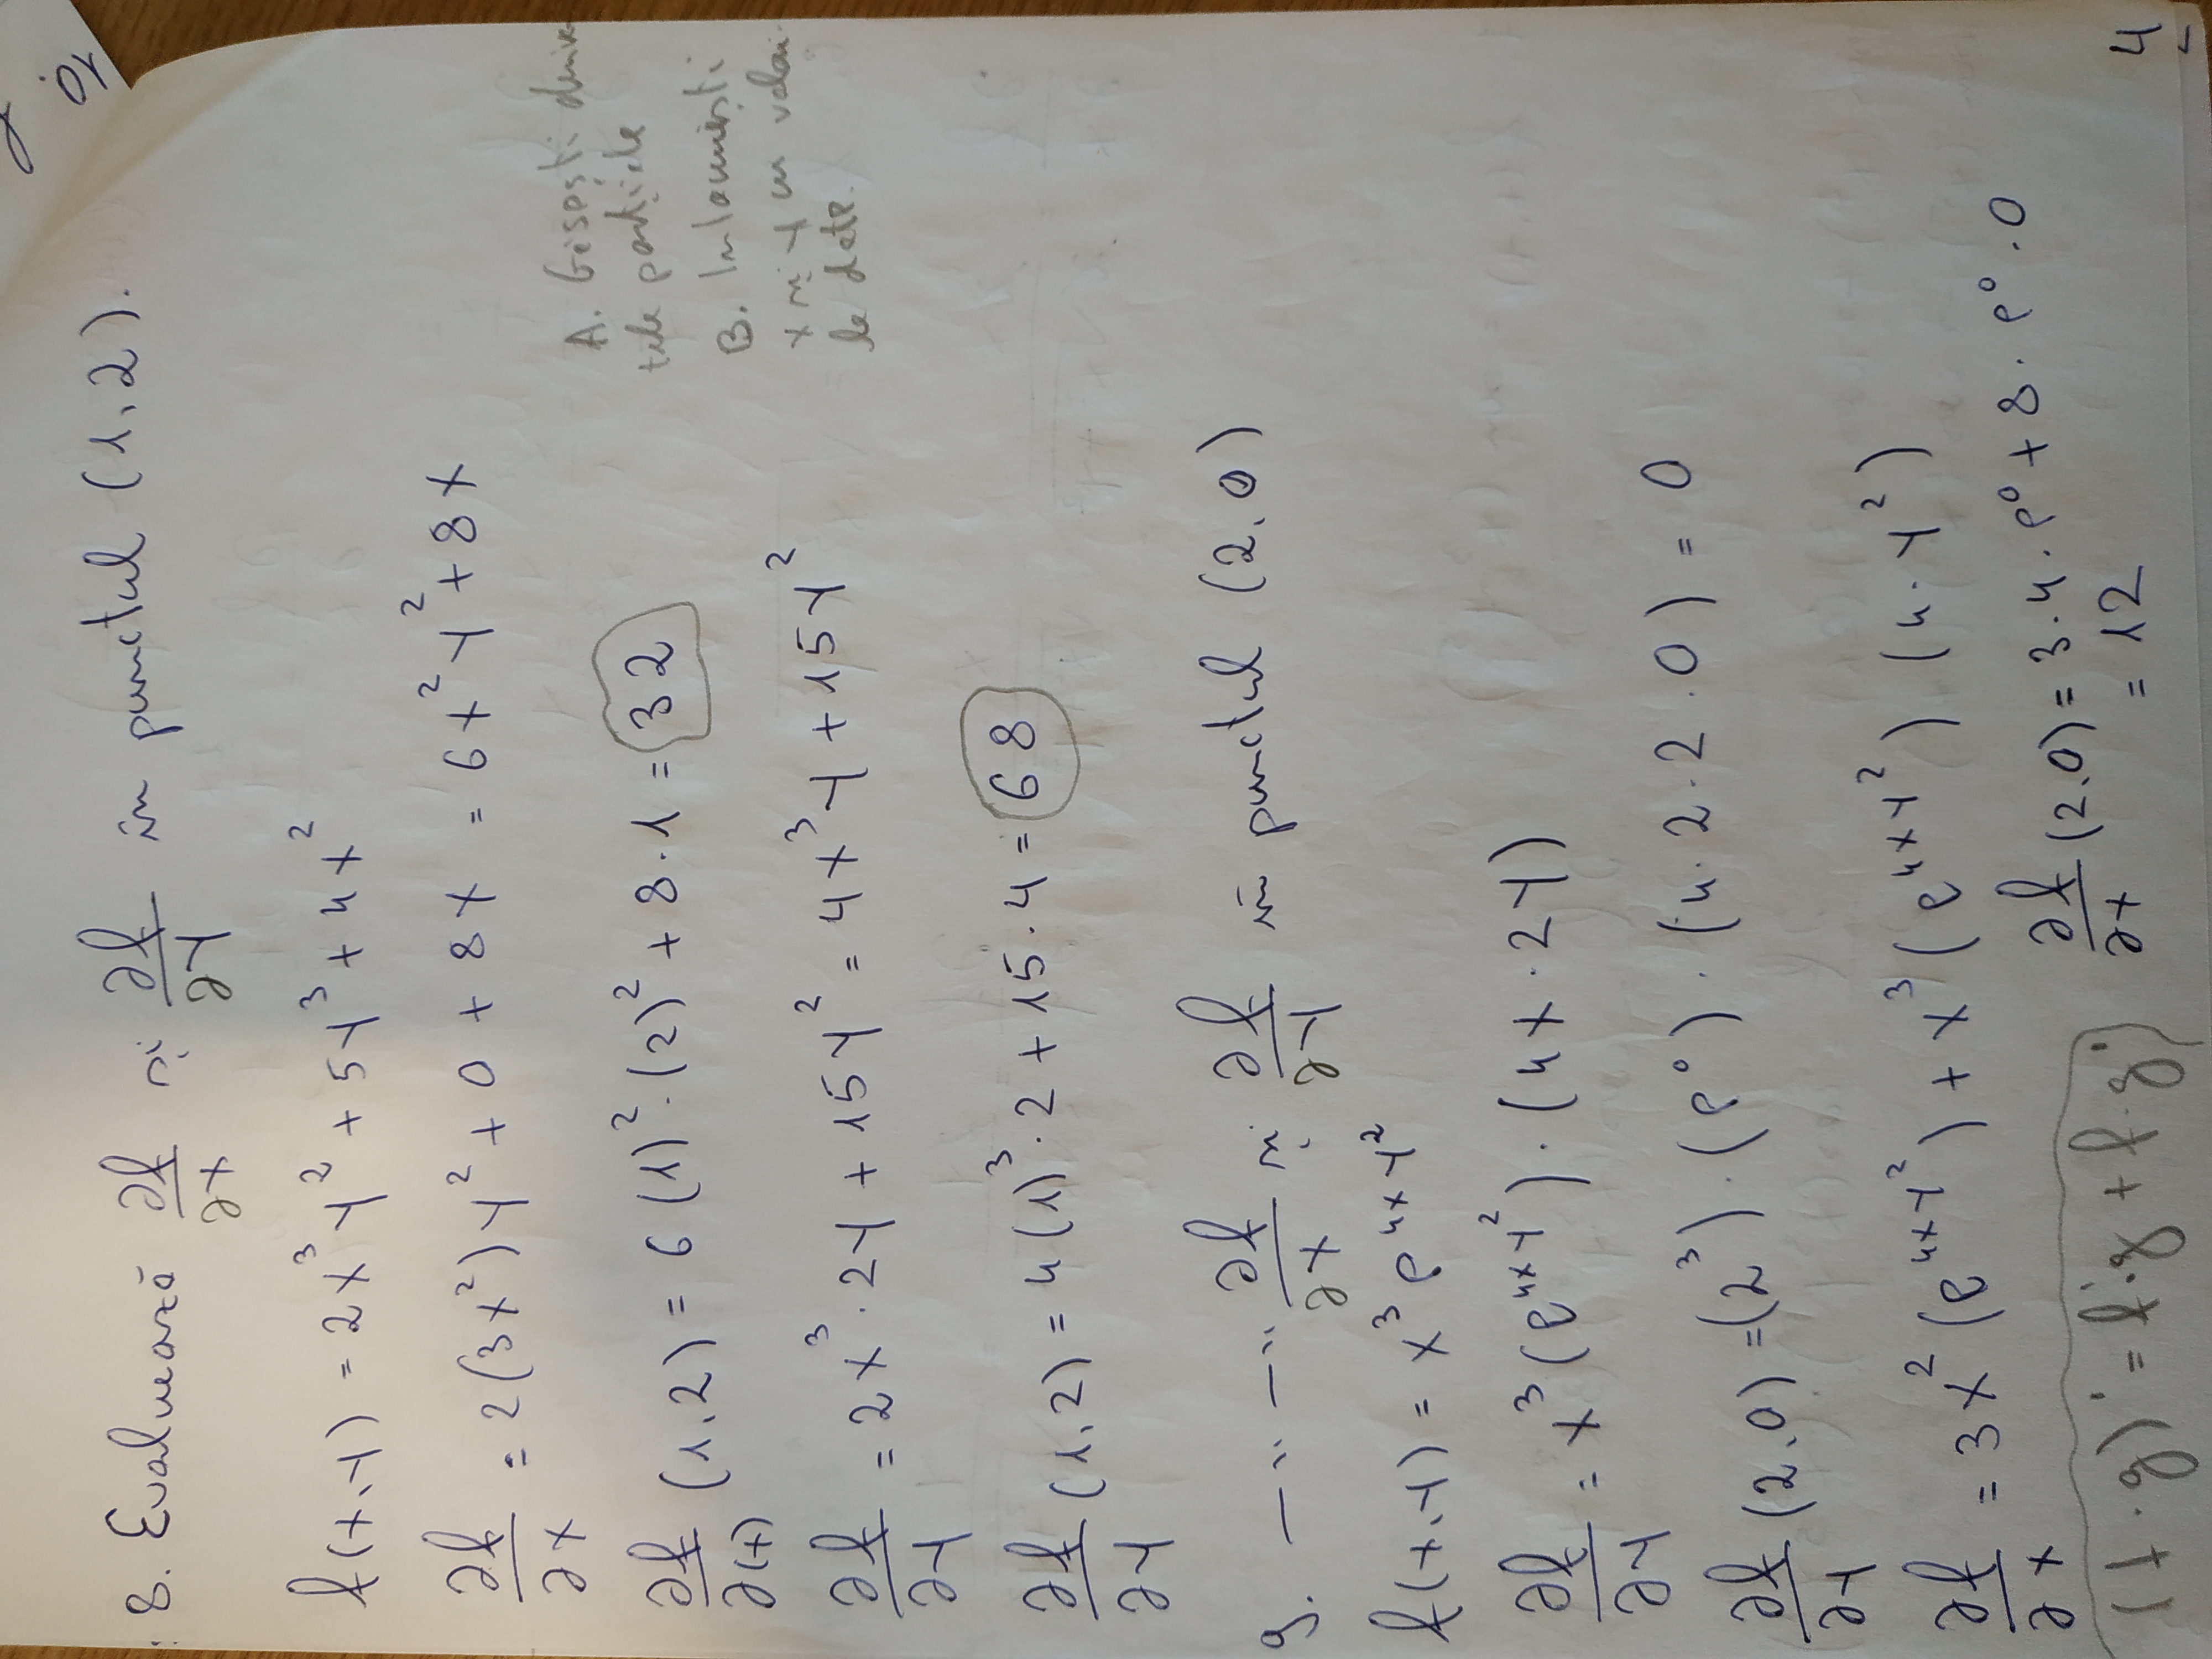 8. Evaluează ∂f/∂x și ∂f/∂y în punctul (1,2).
f(x,y) = 2x³y² + 5y³ + 4x²
∂f/∂x = 2(3x²)y² + 0 + 8x = 6x²y² + 8x
∂f/∂(x) (1,2) = 6(1)²·(2)² + 8·1 = 32
∂f/∂y = 2x³·2y + 15y² = 4x³y + 15y²
∂f/∂y (1,2) = 4(1)³·2 + 15·4 = 68
A. Găsești deriva
tele parțiale
B. Înlocuiești
x și y cu valori
le date.
9. —"— —"— ∂f/∂x și ∂f/∂y în punctul (2,0)
f(x,y) = x³e^(4xy²)
∂f/∂y = x³(e^(4xy²))·(4x·2y)
∂f/∂y (2,0) = (2³)·(e⁰)·(4·2·2·0) = 0
∂f/∂x = 3x²(e^(4xy²)) + x³(e^(4xy²)) (4·y²)
∂f/∂x (2,0) = 3·4·e⁰ + 8·e⁰·0
= 12
(f·g)' = f'·g + f·g'
4
01